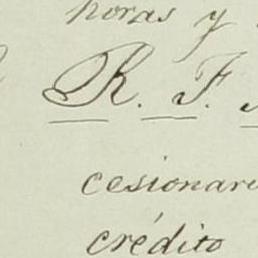 horas y
R. F.
cesionari
crédito